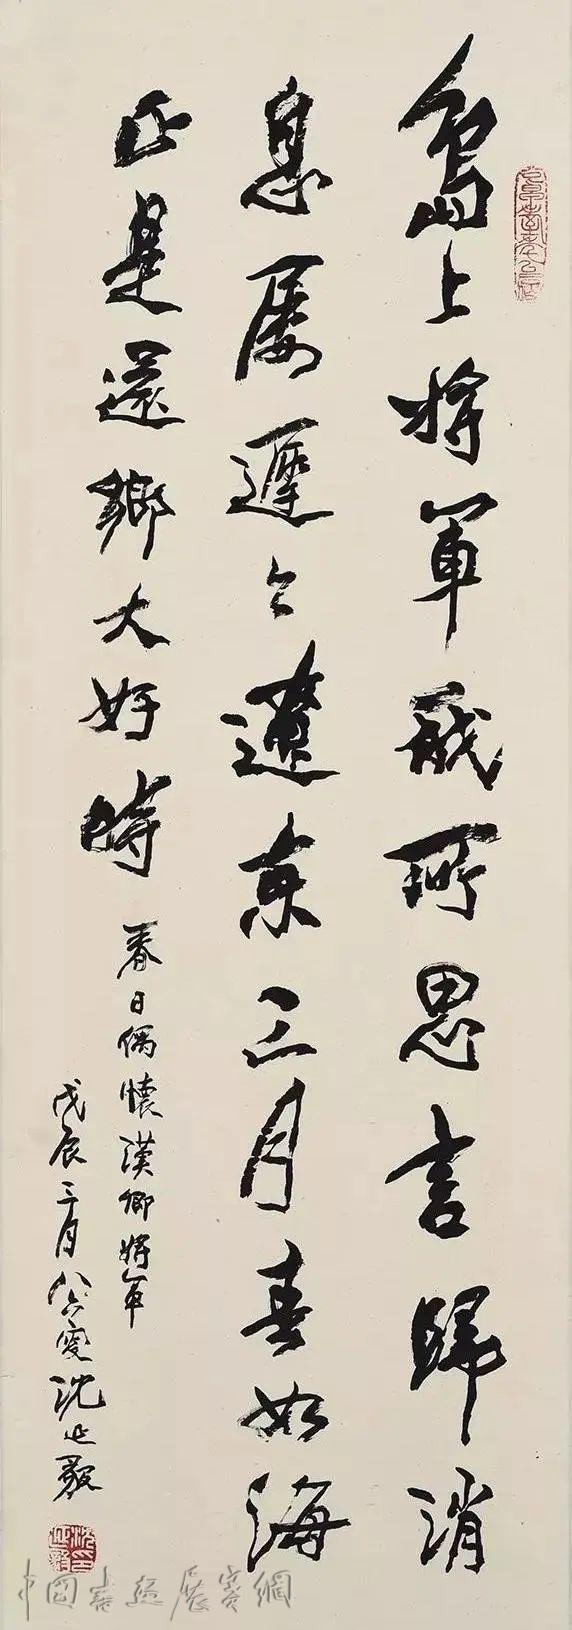 島上將軍我所思言歸消
息屢遲々遼東三月春如海
正是還鄉大好時
春日偶懷漢卿將軍
戊辰三月八六叟沈延毅
中國書畫展賽網